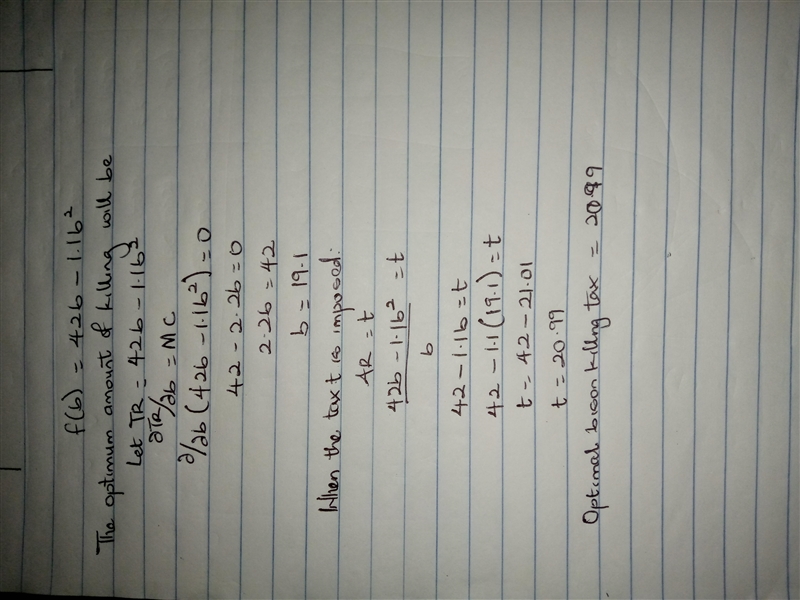 f(b) = 42b - 1.1b²
The optimum amount of killing will be
Let TR = 42b - 1.1b²
∂TR/∂b = MC
∂/∂b (42b - 1.1b²) = 0
42 - 2.2b = 0
2.2b = 42
b = 19.1
When the tax t is imposed:
AR = t
42b - 1.1b² = t
b
42 - 1.1b = t
42 - 1.1(19.1) = t
t = 42 - 21.01
t = 20.99
Optimal bison killing tax = 20.99